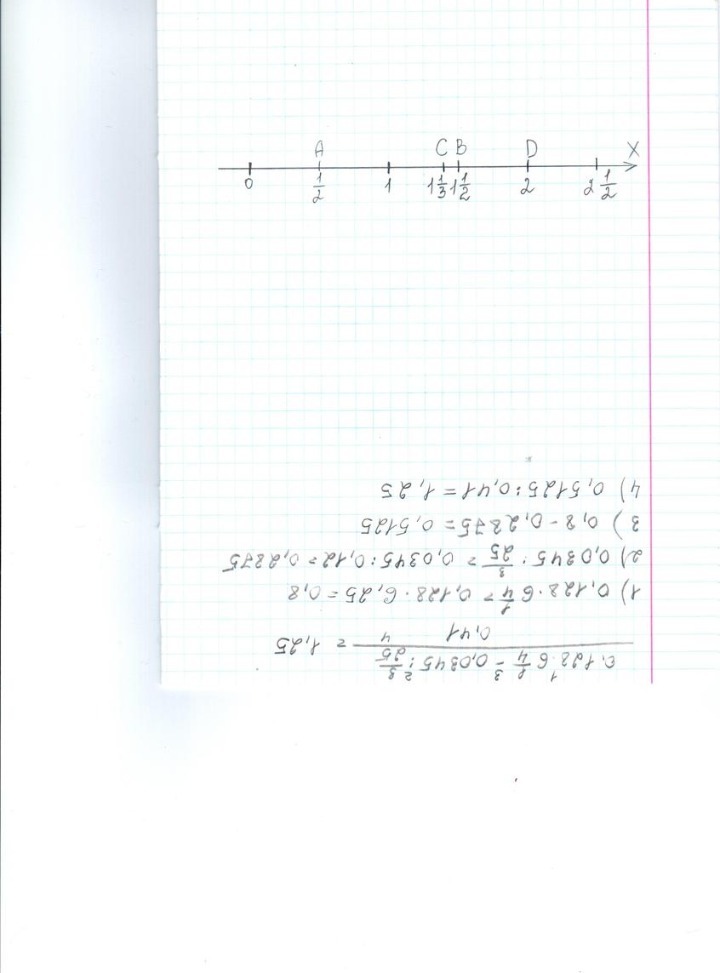 A C B D X
0 1/2 1 1 1/3 1 1/2 2 2 1/2
1 3 2
0,128 · 6 1/4 − 0,0345 : 3/25
——— = 1,25
0,41 4
1) 0,128 · 6 1/4 = 0,128 · 6,25 = 0,8
2) 0,0345 : 3/25 = 0,0345 : 0,12 = 0,2875
3) 0,8 − 0,2875 = 0,5125
4) 0,5125 : 0,41 = 1,25